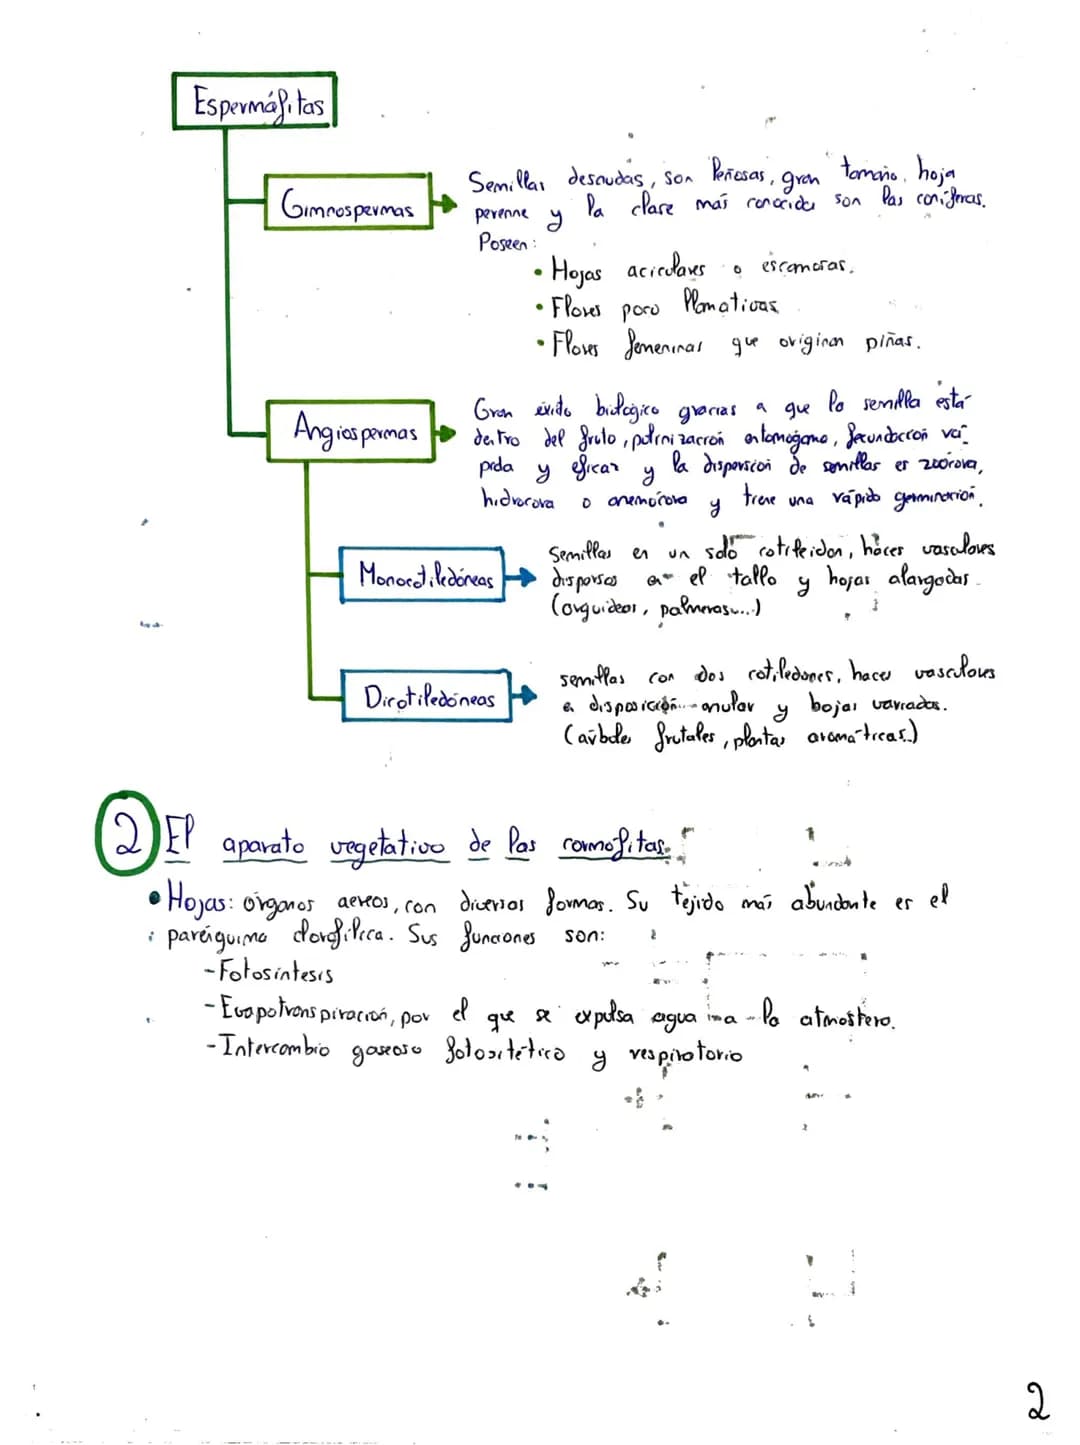 Espermáfitas
Gimnospermas
Semillas desnudas, son leñosas, gran tamaño, hoja
perenne y la clase más conocida son las coníferas.
Poseen:
• Hojas aciculares o escamosas.
• Flores poco llamativas
• Flores femeninas que originan piñas.
Angiospermas
Gran éxito biológico gracias a que la semilla está
dentro del fruto, polinización entomógama, fecundación rá-
pida y eficaz y la dispersión de semillas es zoócora,
hidrocora o anemócora y tiene una rápida germinación.
Monocotiledóneas
Semillas en un solo cotiledon, háces vasculares
dispersos en el tallo y hojas alargadas.
(orquídeas, palmeras...)
Dicotiledóneas
semillas con dos cotiledones, haces vasculares
en disposición anular y hojas variadas.
(árboles frutales, plantas aromáticas.)
2 El aparato vegetativo de las cormófitas.
• Hojas: órganos aereos, con diversas formas. Su tejido más abundante es el
parénquima clorofílica. Sus funciones son:
-Fotosíntesis
-Evapotranspiración, por el que se expulsa agua a la atmosfera.
-Intercambio gaseoso fotositético y respiratorio
2